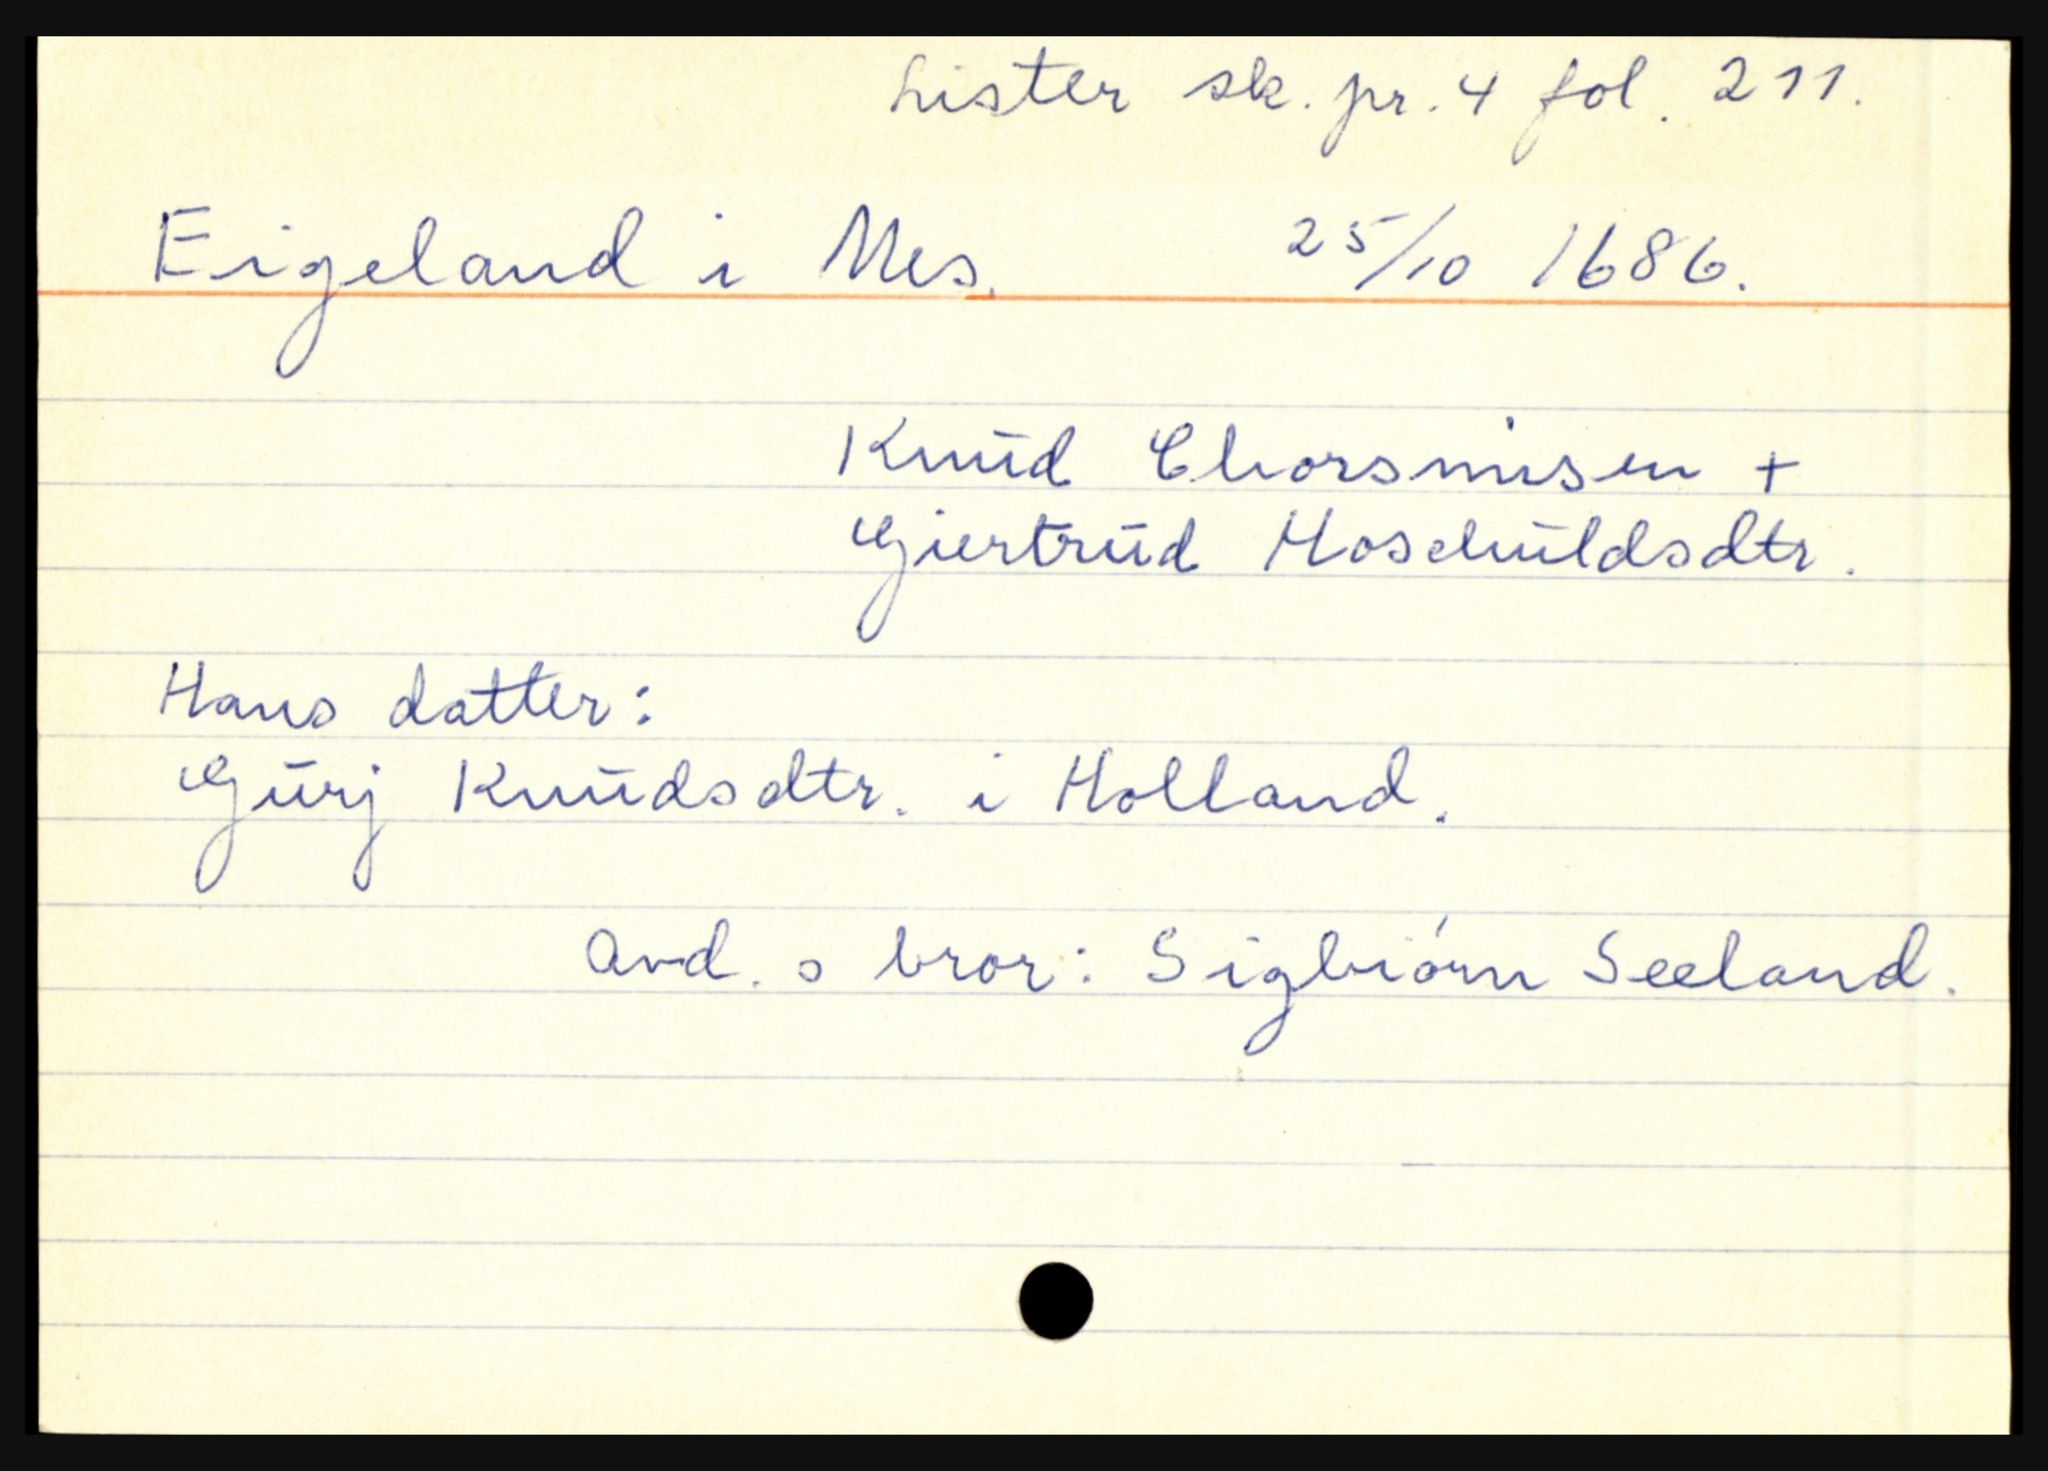 Lister sk. pr. 4 fol. 211.
Eigeland i Nes. 25/10 1686.
Knud Chorsmisen +
Giertrud Hoschuldsdtr.
Hans datter:
Gurj Knudsdtr. i Holland.
Avd. s bror: Sigbiórn Seeland.